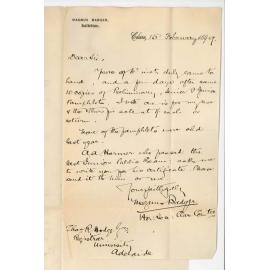 MAGNUS BADGER,
Solicitor.
Clare, 15th February 1899
Dear Sir,
Yours of 4th inst. duly came to
hand, and a few days after same
10 copies of Preliminary, Senior & Junior
Pamphlets.
return.
None of the pamphlets were sold
last year.
Ada Harmer who passed the
last Junior Public Exam: asks me
to write you for her Certificate. Please
send it to her or me
Yours faithfully
Magnus Badger
Hon. Sec. Clare
Chas R. Hodge Esq
Registrar
University
Adelaide